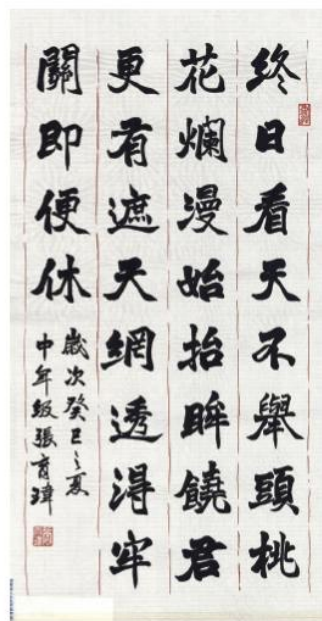 終日看天不舉頭桃
花爛漫始抬眸饒君
更有遮天網透得牢
關即便休
歲次癸巳之夏
中年級張育瑋